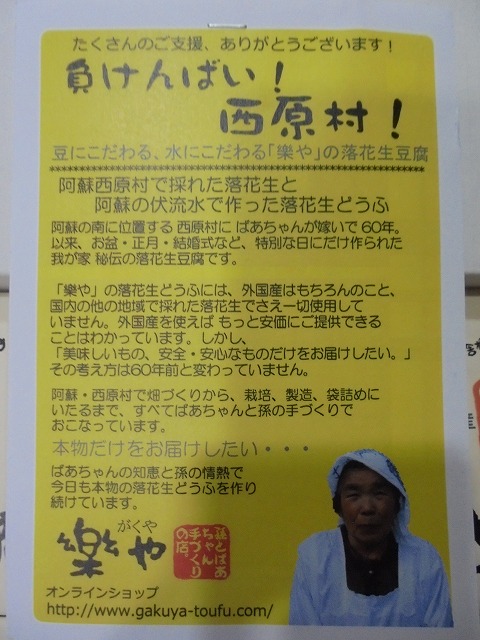 たくさんのご支援、ありがとうございます！
負けんばい！
西原村！
豆にこだわる、水にこだわる「樂や」の落花生豆腐
阿蘇西原村で採れた落花生と
阿蘇の伏流水で作った落花生どうふ
阿蘇の南に位置する 西原村に ばあちゃんが嫁いで 60年。
以来、お盆・正月・結婚式など、特別な日にだけ作られた
我が家 秘伝の落花生豆腐です。
「樂や」の落花生どうふには、外国産はもちろんのこと、
国内の他の地域で採れた落花生でさえ一切使用して
いません。外国産を使えば もっと安価にご提供できる
ことはわかっています。しかし、
「美味しいもの、安全・安心なものだけをお届けしたい。」
その考え方は60年前と変わっていません。
阿蘇・西原村で畑づくりから、栽培、製造、袋詰めに
いたるまで、すべてばあちゃんと孫の手づくりで
おこなっています。
本物だけをお届けしたい・・・
ばあちゃんの知恵と孫の情熱で
今日も本物の落花生どうふを作り
続けています。
がくや
樂や
孫とばあ
ちゃんの
手づくり
の店
オンラインショップ
http://www.gakuya-toufu.com/